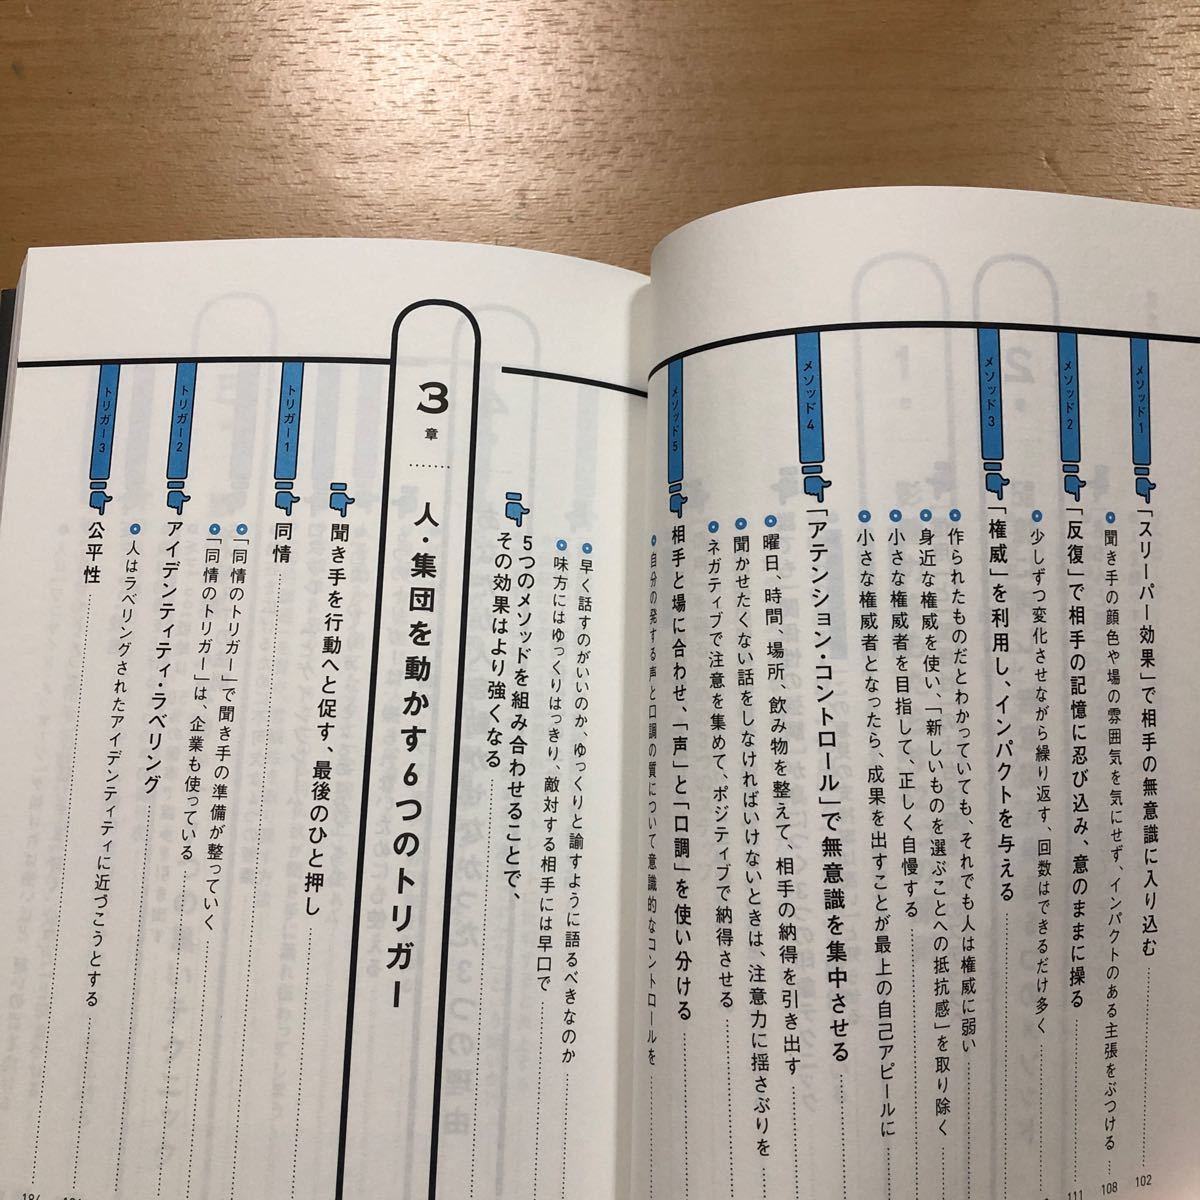 メソッド1
「スリーパー効果」で相手の無意識に入り込む 102
聞き手の顔色や場の雰囲気を気にせず、インパクトのある主張をぶつける 108
メソッド2
「反復」で相手の記憶に忍び込み、意のままに操る 111
少しずつ変化させながら繰り返す、回数はできるだけ多く
メソッド3
「権威」を利用し、インパクトを与える
作られたものだとわかっていても、それでも人は権威に弱い
身近な権威を使い、「新しいものを選ぶことへの抵抗感」を取り除く
小さな権威者を目指して、正しく自慢する
小さな権威者となったら、成果を出すことが最上の自己アピールに
メソッド4
「アテンション・コントロール」で無意識を集中させる
曜日、時間、場所、飲み物を整えて、相手の納得を引き出す
聞かせたくない話をしなければいけないときは、注意力に揺さぶりを
ネガティブで注意を集めて、ポジティブで納得させる
メソッド5
相手と場に合わせ、「声」と「口調」を使い分ける
自分の発する声と口調の質について意識的なコントロールを
早く話すのがいいのか、ゆっくりと諭すように語るべきなのか
味方にはゆっくりはっきり、敵対する相手には早口で
5つのメソッドを組み合わせることで、
その効果はより強くなる
3章 人・集団を動かす6つのトリガー
聞き手を行動へと促す、最後のひと押し
トリガー1
同情
「同情のトリガー」で聞き手の準備が整っていく
「同情のトリガー」は、企業も使っている
トリガー2
アイデンティティ・ラベリング
人はラベリングされたアイデンティティに近づこうとする
トリガー3
公平性